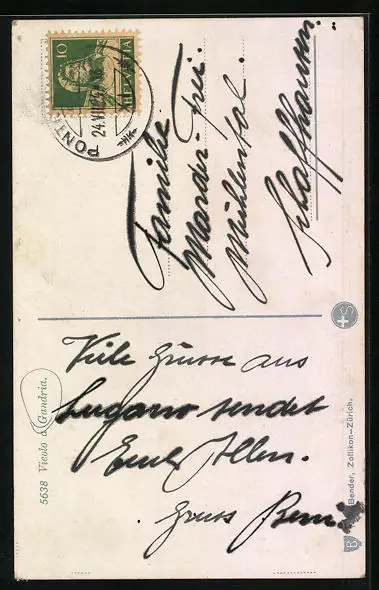 10
HELVETIA
PONT
24.VII.22
Familie
Marder-Frei
Mühlental.
Schaffhausen.
Viele Grüsse aus
Lugano sendet
Euch Allen.
Gruss
5638 Vicolo a Gandria.
Bender, Zollikon-Zürich.